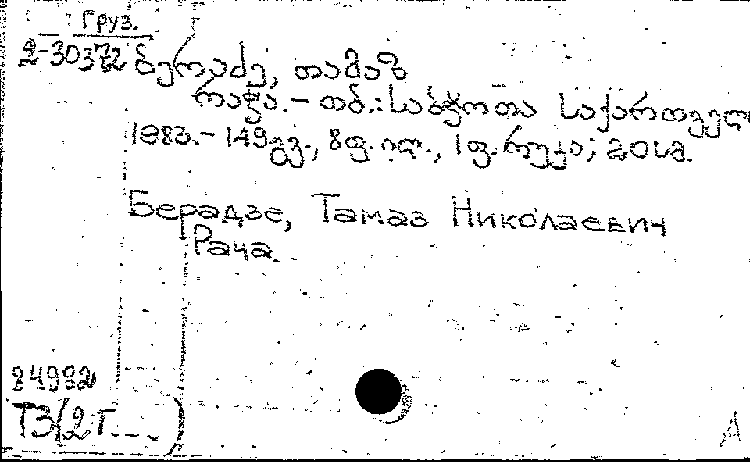 Груз.
2-30372
ბერაძე, თამაზ
რაჭა. - თბ.: საბჭოთა საქართველო
1983. - 149გვ., 8ფ. ილ., 1ფ. რუკა; 20სმ.
Берадзе, Тамаз Николаевич
Рача.
84992
ТЗ(2Г...)